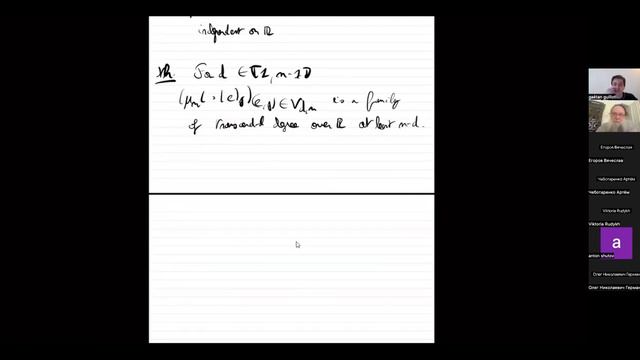 independent on ℝ
Th. For d ∈ ⟦1, n-1⟧
(μₙ( · |e)ⱼ)₍ₑ,ⱼ₎ ∈ V_d,n is a family
of transcend degree over ℝ at least n-d.
gaëtan guillot
Егоров Вячеслав
Егоров Вячеслав
Чеботаренко Артём
Чеботаренко Артём
Viktoria Rudykh
Viktoria Rudykh
a
anton shutov
Олег Николаевич Герман
Олег Николаевич Герман